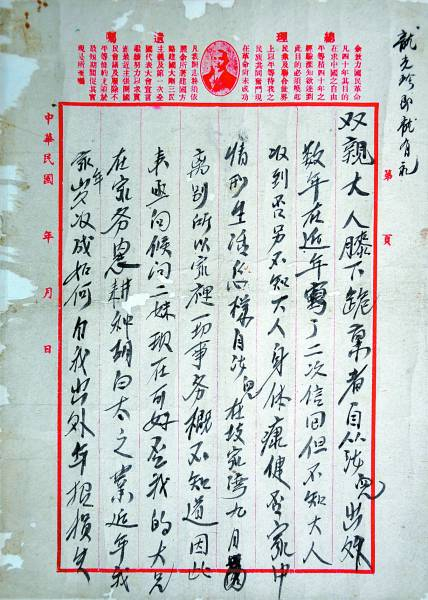 總理遺囑
余致力國民革命
凡四十年其目的
在求中國之自由
平等積四十年之
經驗深知欲達到
此目的必須喚起
民眾及聯合世界
上以平等待我之
民族共同奮鬥現
在革命尚未成功
凡我同志務須依
照余所著建國方
略建國大綱三民
主義及第一次全
國代表大會宣言
繼續努力以求貫
徹最近主張開國
民會議及廢除不
平等條約尤須於
最短期間促其實
現是所至囑
第 頁
双親大人膝下跪稟者自从 兒出外
數年在近年寫了二次信回但不知大人
收到否另不知大人身体康健否家中
情形生活怎樣自 兒在 家灣九月
离别所以家裡一切事务概不知道因此
来 问候问二妹现在可好否我的大兄
在家务農耕种 白太之業近年我
家年岁收成如何自我出外年 损失
中華民國 年 月 日